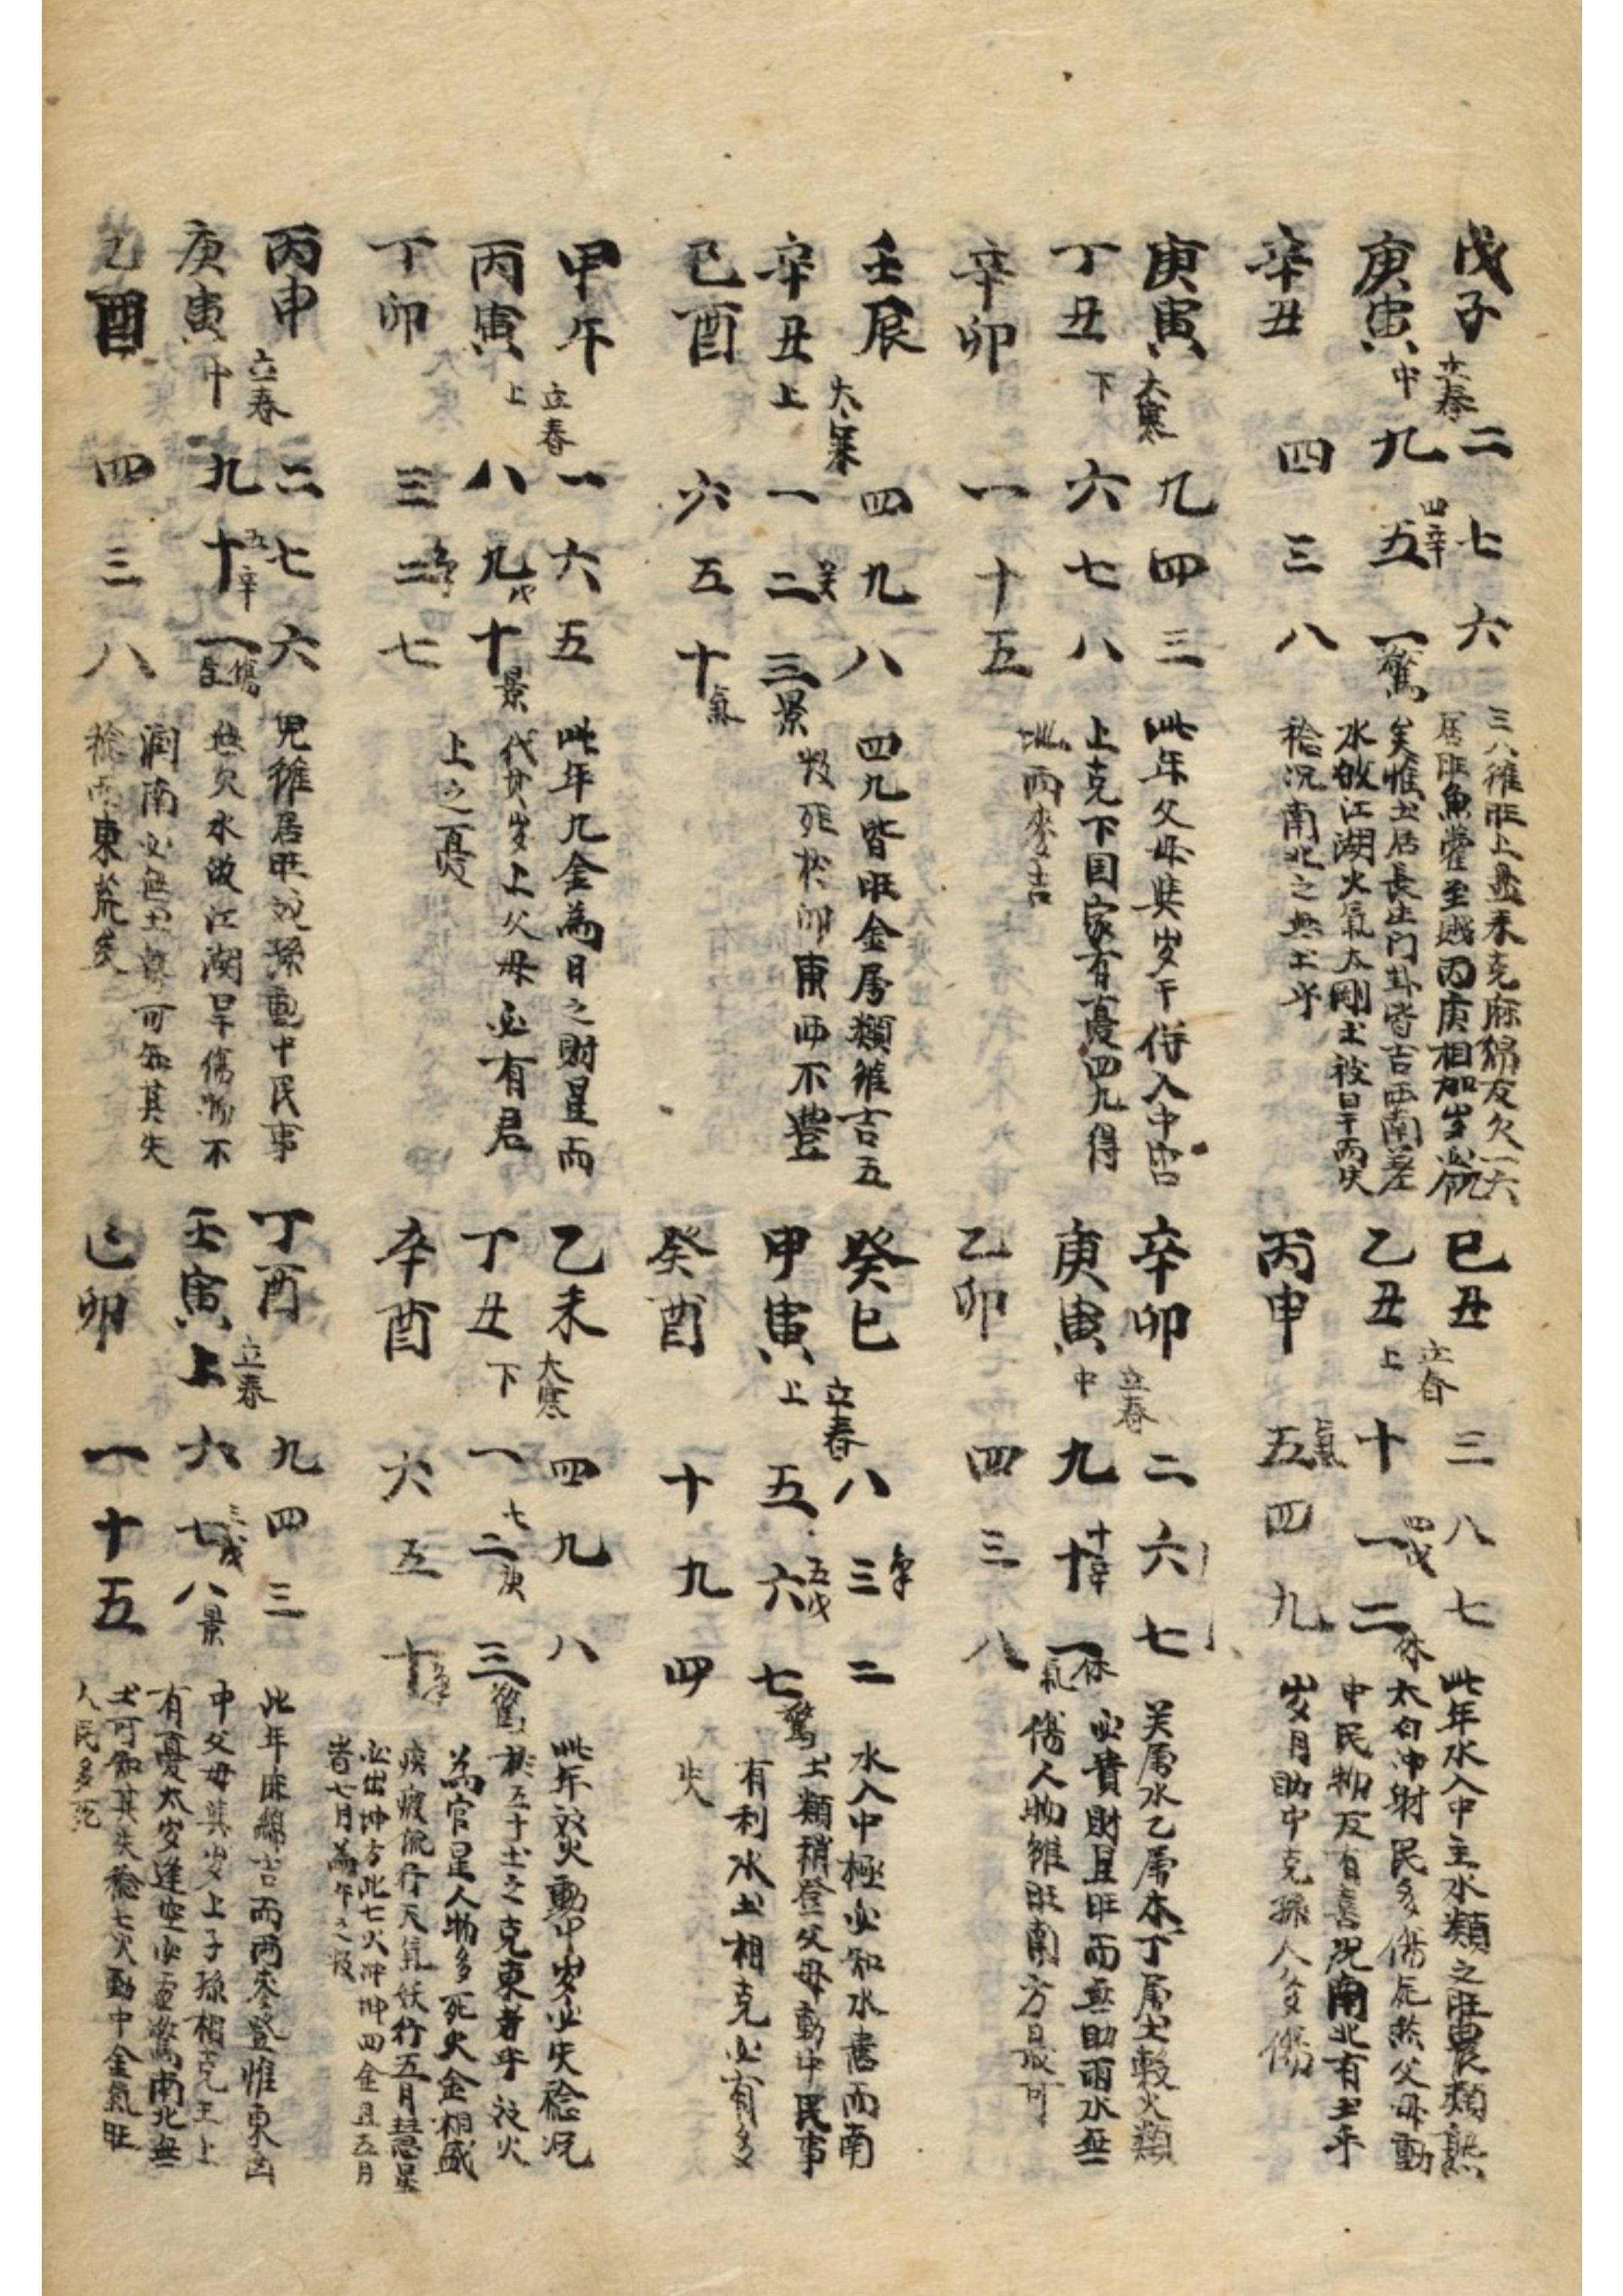 戊子
庚寅 中 立春
辛丑
二 七 六
九 五 一 驚
四辛
四 三 八
三八雖旺上
居旺魚
矣惟土居長生门卦皆吉西南差
水故江湖火氣太剛土被日干而失
稔况南北之無土乎
己丑
乙丑 上 立春
丙申
三 八 七
十 一 二 休
四戊
五 四 九
此年水入中主水類之旺農類熟
太白沖射民多傷虎然父母動
中民物反有喜况南北有土乎
岁月助中克孫人多傷
庚寅
丁丑 下 大寒
辛卯
九 四 三
六 七 八
一 十 五
此年父母與岁干侍入中宮
上克下国家有憂四九得
地而麥吉
辛卯
庚寅 中 立春
乙卯
二 六 七
九 十 一 休
十辛
四 三 八
关属水乙属木丁属土穀火類
必貴財且旺而無助雨水無
傷人物雖旺南方最可
壬辰
辛丑 上 大寒
己酉
四 九 八
一 二 三 景
六 五 十
四九皆旺金属類雖吉五
穀死於卯東西不豊
癸巳
甲寅 上 立春
癸酉
八 三 二
五 六 七 驚
五戊
十 九 四
水入中極必知水害而南
土類稍登父母動中民事
有利水土相克必有多
失
甲午
丙寅 上 立春
丁卯
一 六 五
八 九 十 景
三 二 七
此年九金為日之財星而
代其岁上父母必有君
上之憂
乙未
丁丑 下 大寒
辛酉
四 九 八
一 二 三 驚
七 庚
六 五 十
此年波火動中岁必失稔况
於五十土之克東者乎波火
為官星人物多死火金相盛
疾疲流行天氣妖行五月彗星
必出坤方此七火沖坤四金且五月
皆七月為午之報
丙申
庚寅 中 立春
乙酉
二 七 六
九 十 一
五辛
傷
四 三 八
兒雖居旺况孫動中民事
無欠水故江湖旱傷物不
潤南必無土豈可無其失
稔西東荒矣
丁酉
壬寅 上 立春
己卯
九 四 三
六 七 八 景
三戊
一 十 五
此年麻綿吉而两麥登惟東凶
中父母其岁上子孫相克主上
有憂太岁逢空必重驚南北無
土可知其失稔七火動中金氣旺
人民多死